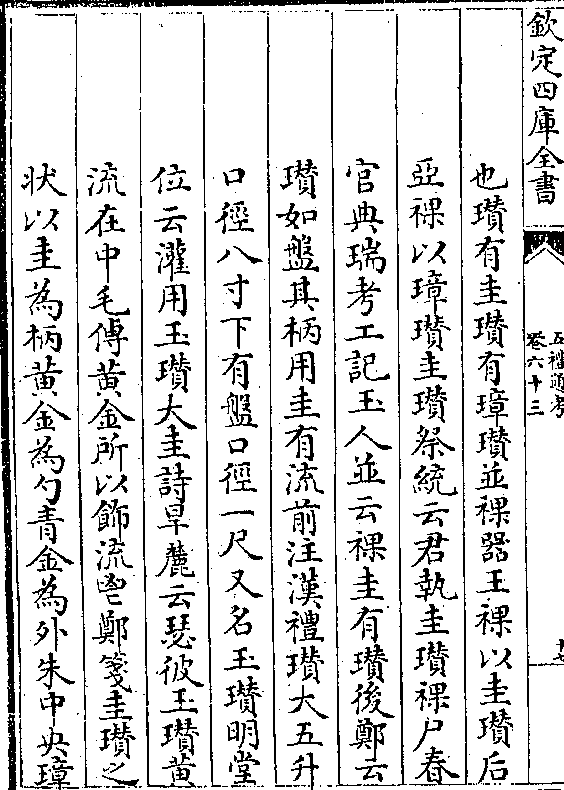 欽定四庫全書
五禮通考
卷六十三
也瓚有圭瓚有璋瓚並祼器王祼以圭瓚后
亞祼以璋瓚圭瓚祭統云君執圭瓚祼尸春
官典瑞考工記玉人並云祼圭有瓚後鄭云
瓚如盤其柄用圭有流前注漢禮瓚大五升
口徑八寸下有盤口徑一尺又名玉瓚明堂
位云灌用玉瓚大圭詩旱麓云瑟彼玉瓚黄
流在中毛傳黄金所以飾流鬯鄭箋圭瓚之
狀以圭為柄黄金為勺青金為外朱中央璋